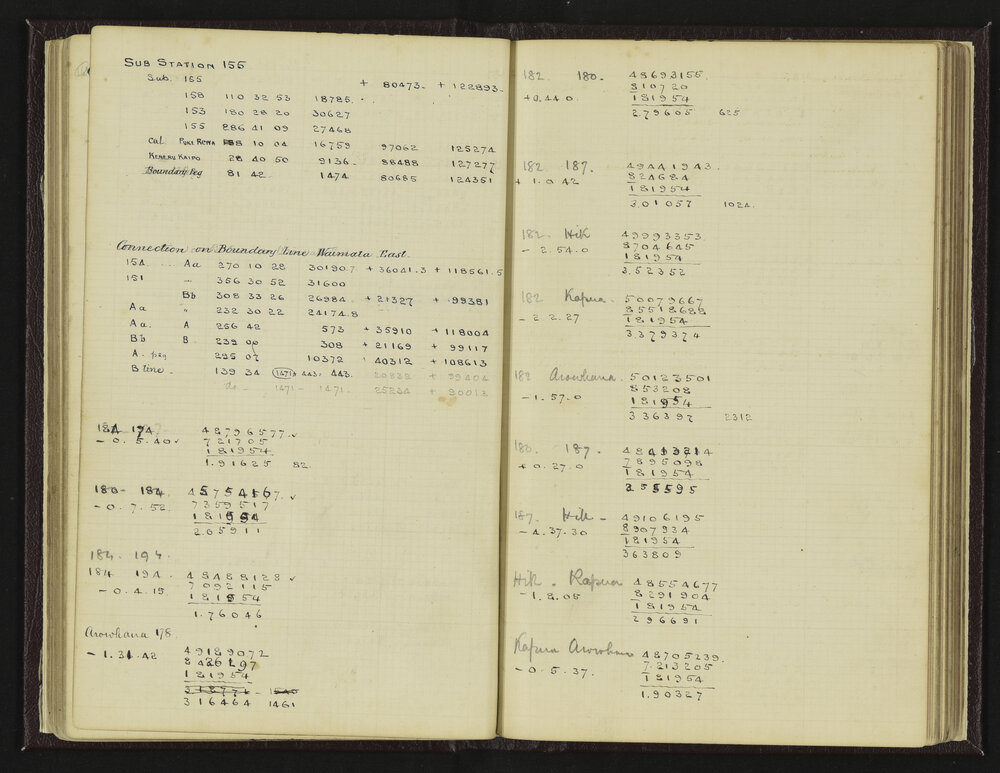 SUB STATION 155
Sub. 155 + 80473. + 122893.
158 110 32 53 18786.
153 180 28 20 30627
155 286 41 09 27468
Cal PUKE REWA 10 04 16759 97062 125274
KERERU KAIPO 28 40 50 9136. 88488 127277
Boundary Peg 81 42 1474 80685 124351
Connection on Boundary Line Waimata East.
154. Aa 270 10 28 30190.7 + 36041.3 + 118561.5
151 " 356 30 52 31600
Bb 308 33 26 26984 + 21327 + 99381
Aa " 232 30 22 24174.8
Aa. A 256 42 573 + 35910 + 118004
Bb B. 239 00 308 + 21169 + 99117
A. peg 295 07 10372 40312 + 108613
B line. 139 34 1471 443. 443. 20832 + 99404
do - 1471 - 1471. 25234 + 80013
184 174. 48796577. ✓
- 0. 5. 40 ✓ 721705
181954
1.91625 82.
180 - 184.
- 0. 7. 52. 7359517
181954
2.05911
184. 194.
184 194. 48488128 ✓
- 0. 4. 15. 7092115
181954
1.76046
Arowhana 178.
- 1. 31. 42 49189072
181954
316464 1461
182. 180. 48693155.
+0.44.0. 810720
181954
2.79605 625
182 187. 49441943.
+ 1. 0. 42 824684
181954
3.01057 1024.
182. Hik 49993353.
- 2. 54. 0 8704645
181954
3.52352
182 Kapua. 50079667
- 2. 2. 27 85518688
181954
3.379374
182 Arowhana. 50123501
- 1. 57. 0 853208
181954
336397 2312
180. 187.
+ 0. 27. 0 7895098
181954
2.55595
187. Hik - 49106195
- 4. 37. 30 8907934
181954
363809
Hik - Kapua 48554677
- 1. 8. 05 8291904
181954
296691
Kapua Arowhana 48705239.
- 0. 5. 37. 7213205
181954
1.90327